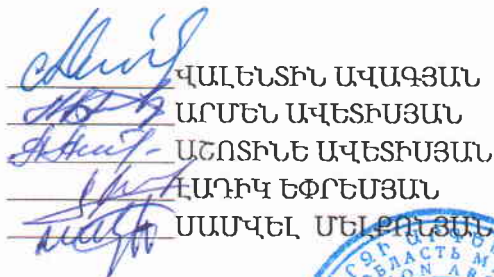 ՎԱԼԵՆՏԻՆ ԱՎԱԳՅԱՆ
ԱՐՄԵՆ ԱՎԵՏԻՍՅԱՆ
ԱՇՈՏԻՆԵ ԱՎԵՏԻՍՅԱՆ
ԷԴԻԿ ԵՓՐԵՄՅԱՆ
ՍԱՄՎԵԼ ՄԵԼՔՈՆՅԱՆ